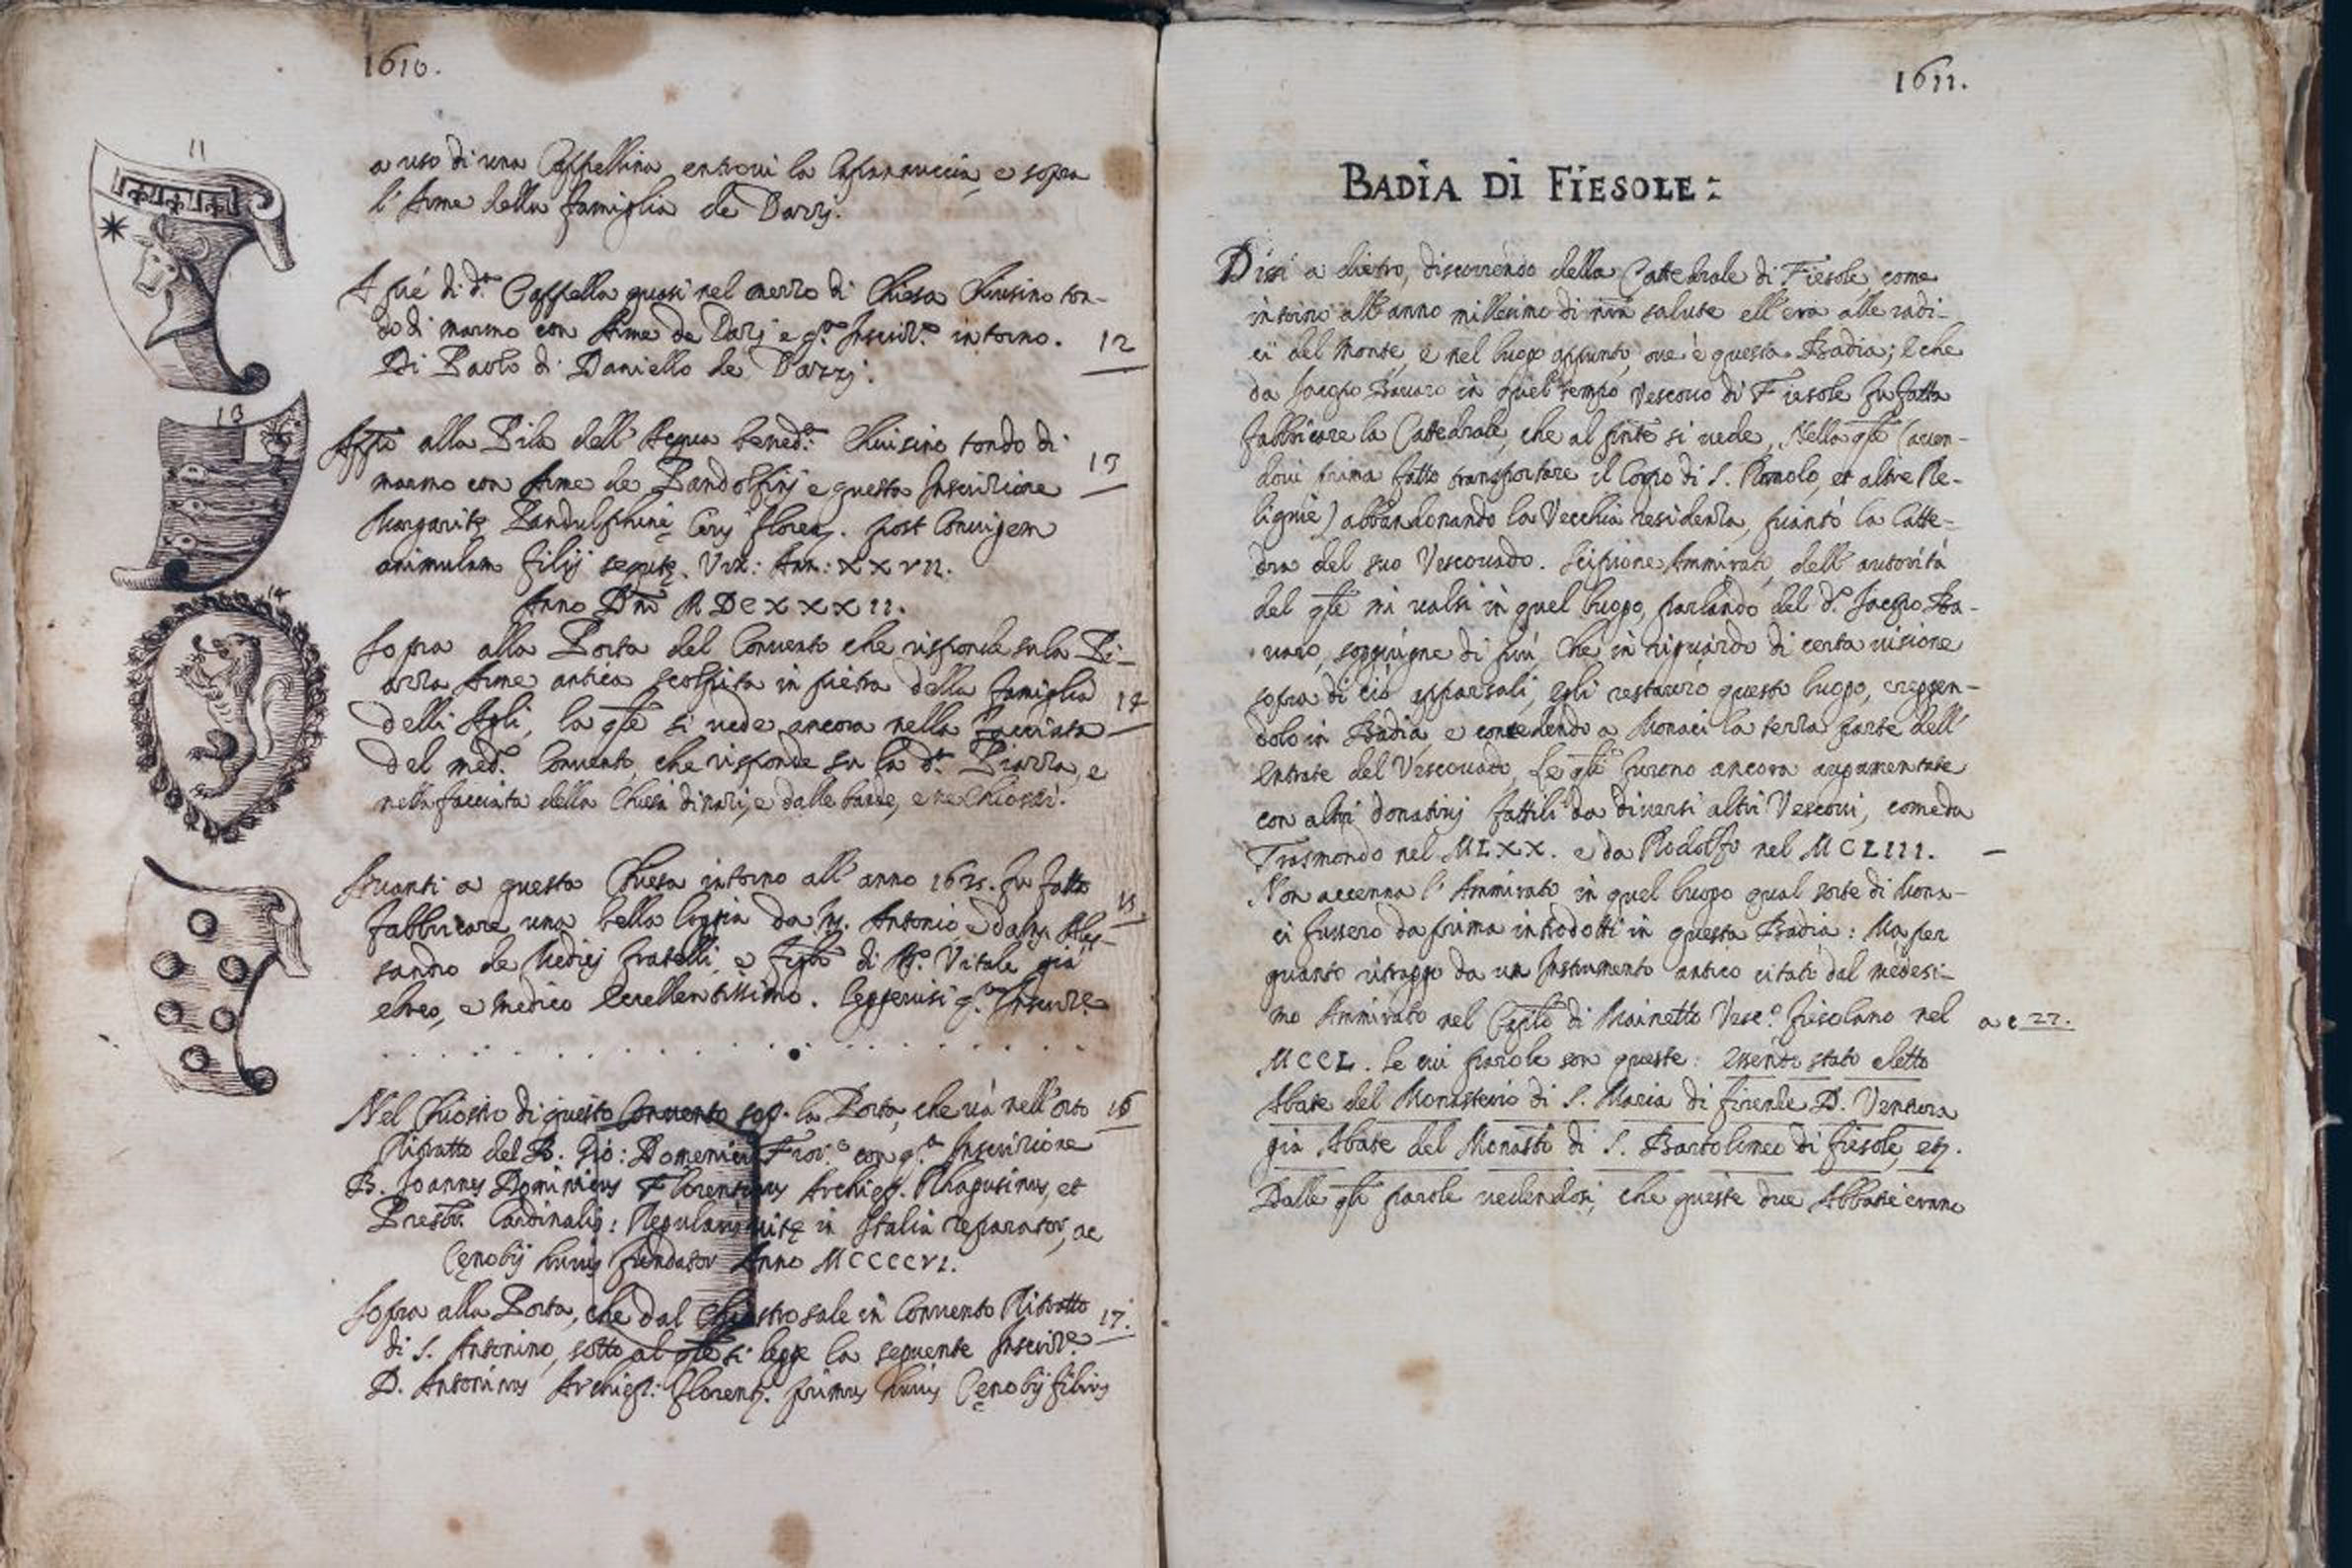 1610.
11
a uso di una Cappellina entrovi la Capannuccia, e sopra
l'Arme della famiglia de Dazzj.
A piè di d.ª Cappella quasi nel mezzo di Chiesa Chiusino ton-
do di marmo con Arme de Dazj e q.ta Inscriz.e intorno. 12
Di Paolo di Daniello de Dazzj.
13
Appiè alla Pila dell'Acqua bened.ta Chiusino tondo di
marmo con Arme de Pandolfinj e questa Inscrizione 13
Margaritę Pandulphinę Floren. post Coniugem
animulam filij sequtę. Vix: Ann: XXVII.
Anno Dnī MDCXXXII.
14
Sopra alla Porta del Convento che risponde sula Pi-
azza Arme antica scolpita in pietra della famiglia 14
delli Agli, la qle si vede ancora nella facciata
del med.o Convento, che risponde su la d.ª Piazza, e
nella facciata della Chiesa dinanzi, e dalle bande, e ne Chiostri.
Avanti a questa Chiesa intorno all'anno 1635. fu fatto
fabbricare una bella loggia da M. Antonio, e da M. Ales- 15
sandro de Medicj fratelli, e figli di M.o Vitale già
ebreo, e medico Eccellentissimo. leggevisi q.ta Inscriz.e
. . . . . . . . . . . . . . . .
Nel Chiostro di questo Convento sop.a la Porta, che và nell'orto 16
Ritratto del B. Gio: Domenici Fior.o con q.ta Inscrizione
B. Joannes Dominicus Florentinus Archiep. Rhagusinus, et
Presbr. Cardinalis: Regularis vitę in Italia reparator, ac
Cęnobij huius fundator Anno MCCCCVI.
Sopra alla Porta, che dal Chiostro sale in Convento Ritratto 17.
di S. Antonino, sotto al qle si legge la seguente Inscriz.e
D. Antoninus Archiep: Florent. primus huius Cęnobij filius
1611.
BADIA DI FIESOLE:
Dissi a dietro, discorrendo della Cattedrale di Fiesole, come
intorno all'anno millesimo di nrā salute ell'era alle radi-
ci del Monte, e nel luogo appunto, ove è questa Badia; e che
da Jacopo Bavaro in quel tempo Vescovo di Fiesole fu fatta
fabbricare la Cattedrale, che al pnte si vede, Nella qle (aven-
dovi prima fatto transportare il Corpo di S. Romolo, et altre Re-
liquie) abbandonando la Vecchia residenza, piantò la Catte-
dra del suo Vescovado. Scipione Ammirati, dell'autorità
del qle mi valsi in quel luogo, parlando del d.o Jacopo Ba-
varo, soggiugne di più, che in riguardo di certa visione
sopra di ciò apparsali, egli restaurò questo luogo, ereggen-
dolo in Badia, e concedendo a Monaci la terza parte dell'
entrate del Vescovado, Le qli furono ancora augumentate
con altri donativj fattili da diversi altri Vescovi, come da
Trasmondo nel MLXX. e da Rodolfo nel MCLIII. –
Non accenna l'Ammirato in quel luogo qual sorte di Mona-
ci fussero da prima introdotti in questa Badia: Ma per
quanto ritraggo da un Instrumento antico citato dal medesi-
mo Ammirato nel Capitlo di Mainetto Vesc.o fiesolano nel a c 27.
MCCL. le cui parole son queste: essendo stato eletto
Abate del Monasterio di S. Maria di firenze D. Ventura
già Abate del Monasto di S. Bartolimeo di fiesole, etc.
Dalle qli parole vedendosi, che queste due Abbatie erano